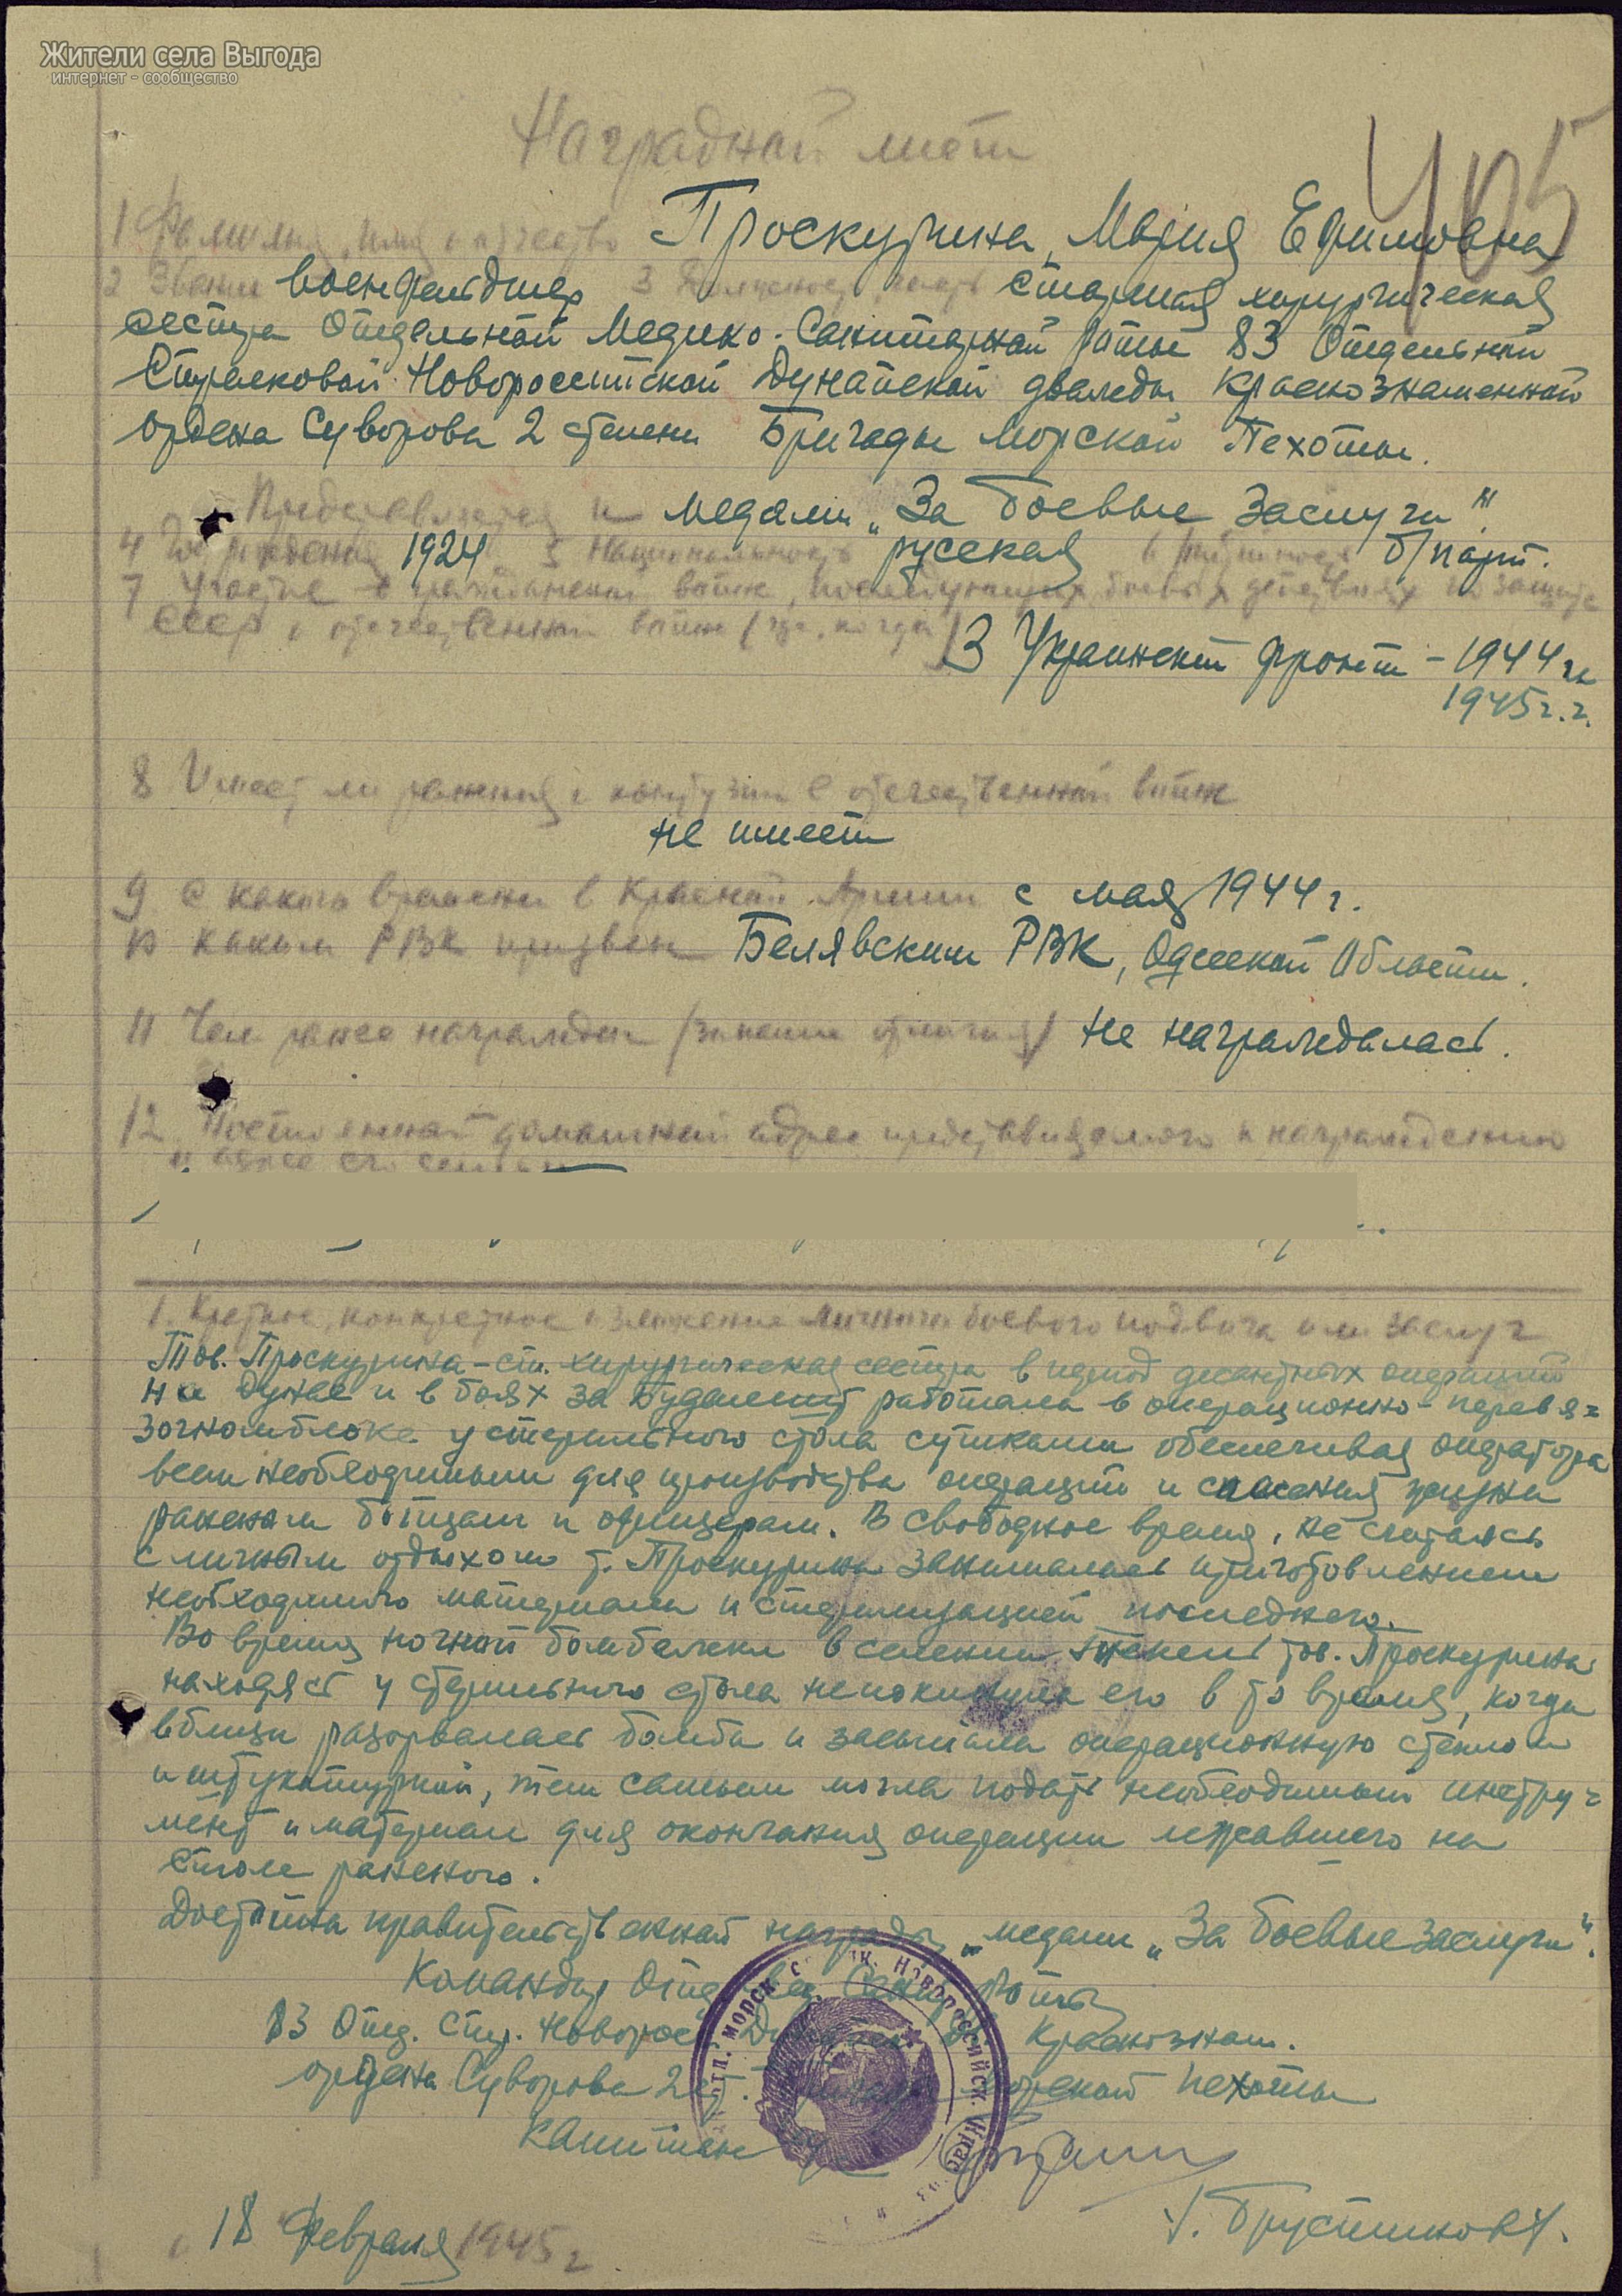 Жители села Выгода
интернет - сообщество
405
Наградной лист
1 Фамилия, имя и отчество Проскурина, Мария Ефимовна
2 Звание военфельдшер 3 Должность, часть Старшая хирургическая
сестра Отдельной Медико-Санитарной Роты 83 Отдельной
Стрелковой Новороссийской Дунайской дважды Краснознаменной
ордена Суворова 2 степени Бригады Морской Пехоты.
Представляется к медали „За боевые заслуги".
4 Год рождения 1924 5 Национальность русская 6 Партийность б/парт.
7 Участие в гражданской войне, последующих боевых действиях по защите
СССР и отечественной войне (где, когда) 3 Украинский фронт - 1944 и
1945 г.г.
8 Имеет ли ранения и контузии в отечественной войне
не имеет
9 С какого времени в Красной Армии с мая 1944 г.
10 Каким РВК призван Белявским РВК, Одесской Области.
11 Чем ранее награжден (за какие отличия) Не награждалась.
12 Постоянный домашний адрес представляемого к награждению
и адрес его семьи
1. Краткое, конкретное изложение личного боевого подвига или заслуг
Тов. Проскурина - ст. хирургическая сестра в период десантных операций
на Дунае и в боях за Будапешт работала в операционно-перевя=
зочном блоке у стерильного стола сутками обеспечивая оператора
всем необходимым для производства операций и спасения жизни
раненым бойцам и офицерам. В свободное время, не считаясь
с личным отдыхом т. Проскурина занималась приготовлением
необходимого материала и стерилизацией последнего.
Во время ночной бомбежки в селении тов. Проскурина
находясь у стерильного стола непокинула его в то время, когда
вблизи разорвалась бомба и засыпала операционную стеклом
и штукатуркой, тем самым могла подать необходимый инстру=
мент и материал для окончания операции лежавшего на
столе раненого.
Достойна правительственной награды „медали „За боевые заслуги".
Командир Отд. Мед. Сан. Роты
83 Отд. Стр. Новорос. Дунайской Краснознам.
ордена Суворова 2 ст. Бригады Морской Пехоты
Капитан
/. Брустинков /.
18 февраля 1945 г
отд. морск. Новороссийск. Крас